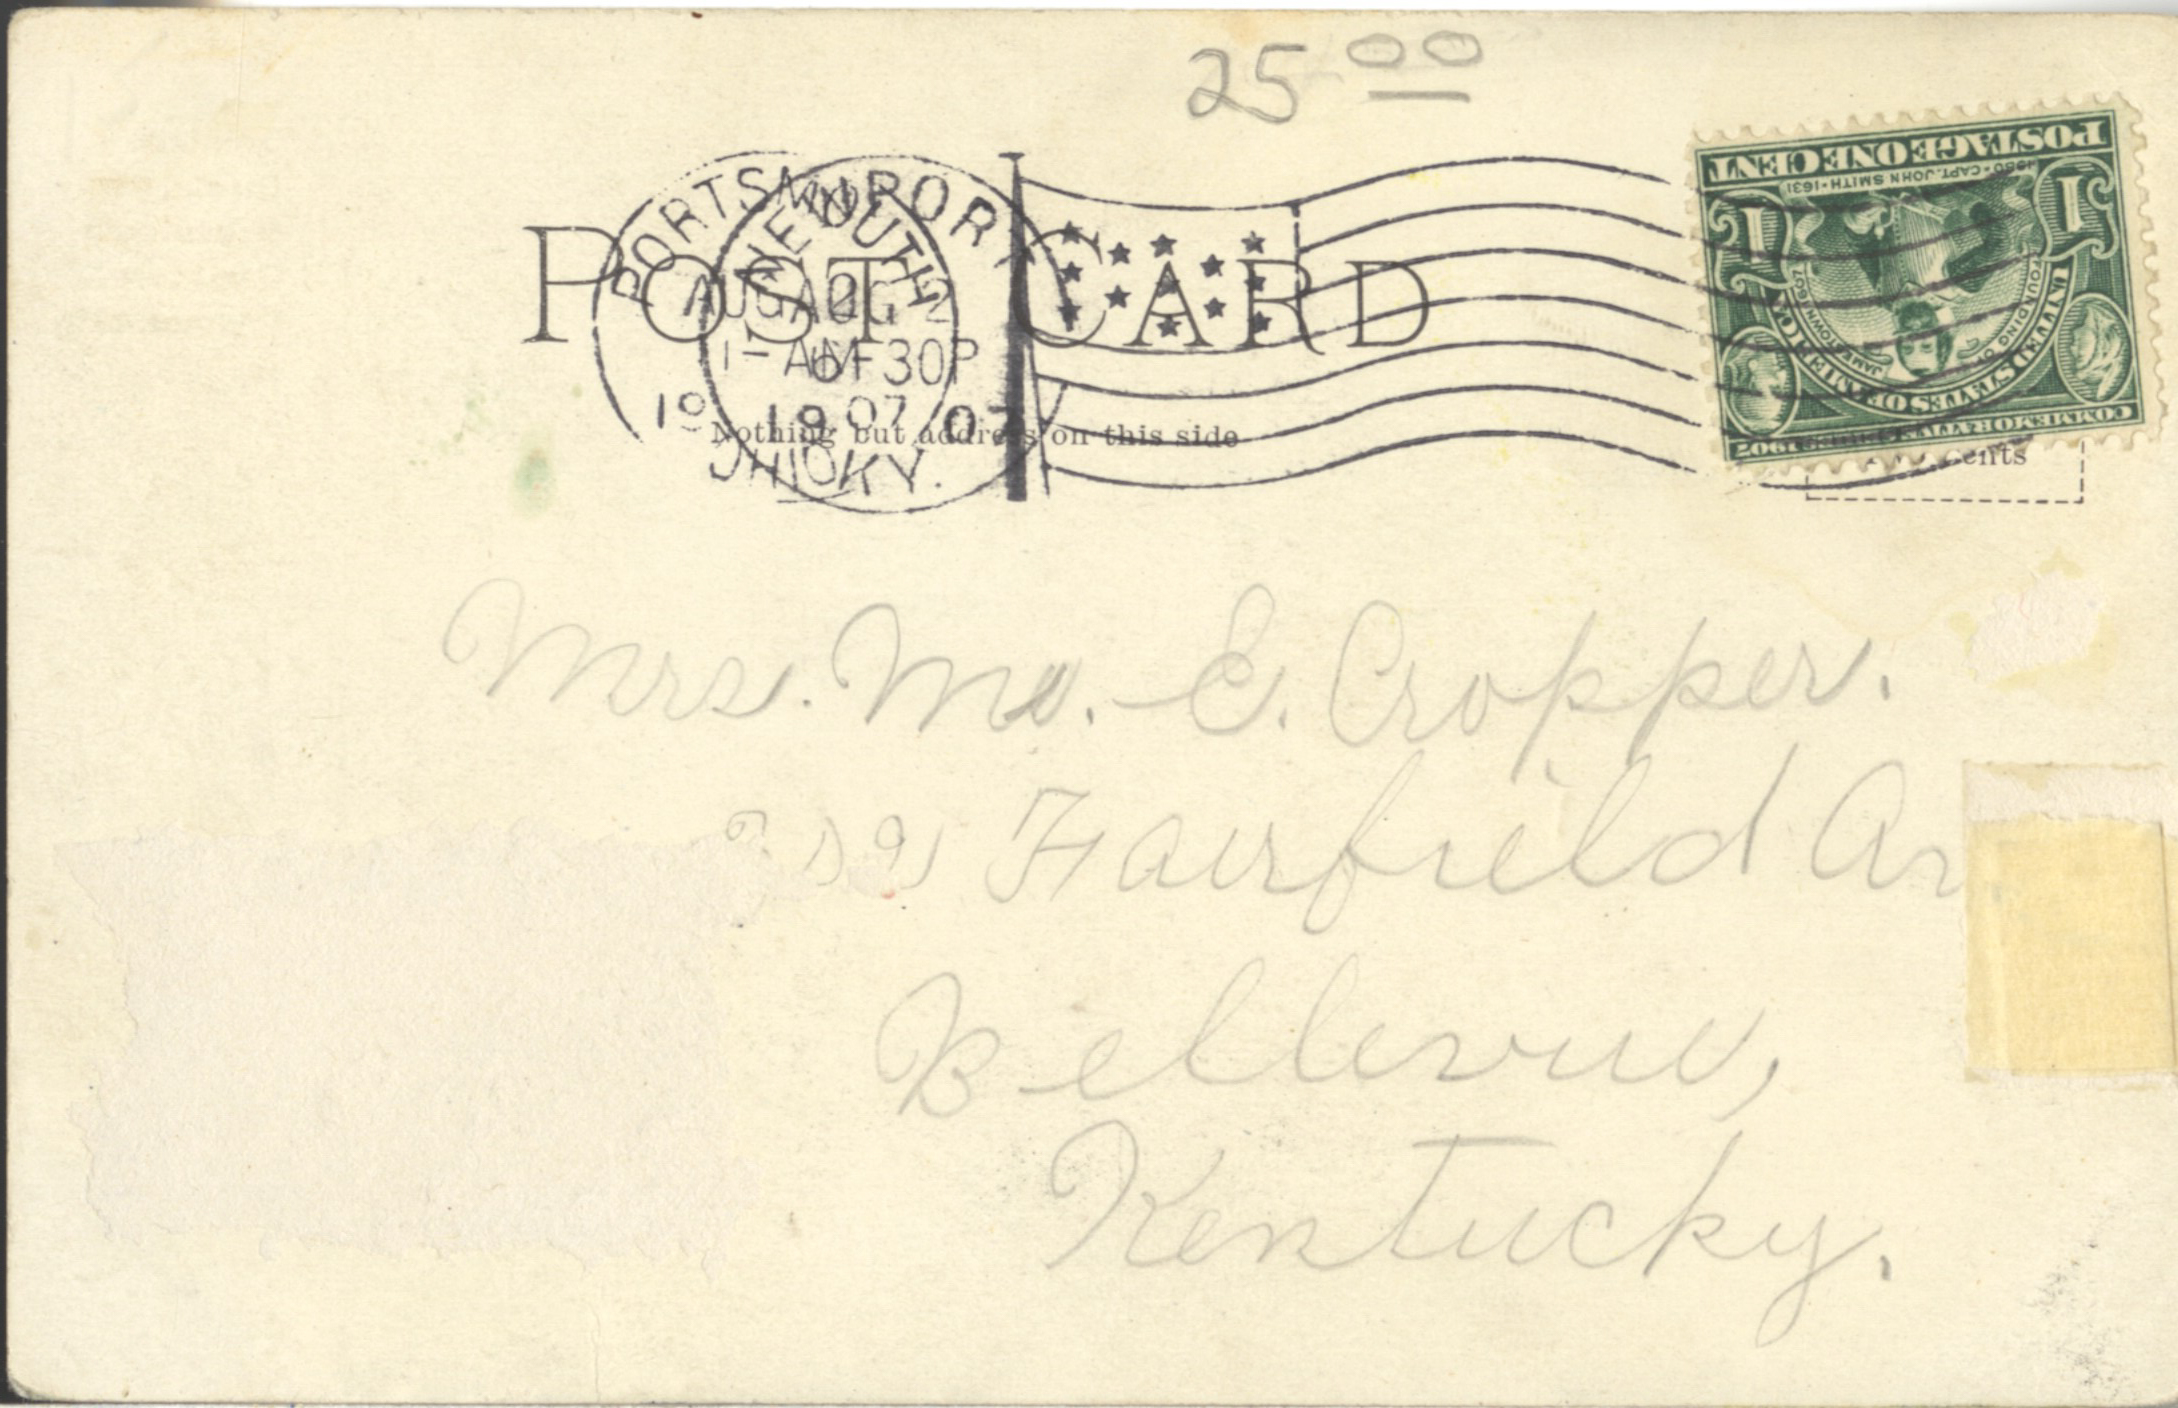 25 00
PORTSMOUTH
NEWPORT
AUG 2
AUG 2
1-AM
6-30P
1907
1907
OHIO
KY.
POST CARD
Nothing but address on this side
POSTAGE ONE CENT
1580 · CAPT. JOHN SMITH · 1631
1 1
FOUNDING OF JAMESTOWN 1607
UNITED STATES OF AMERICA
COMMEMORATIVE SERIES 1907
Cents
Mrs. Mo. E. Cropper.
Fairfield Av
Bellevue,
Kentucky.